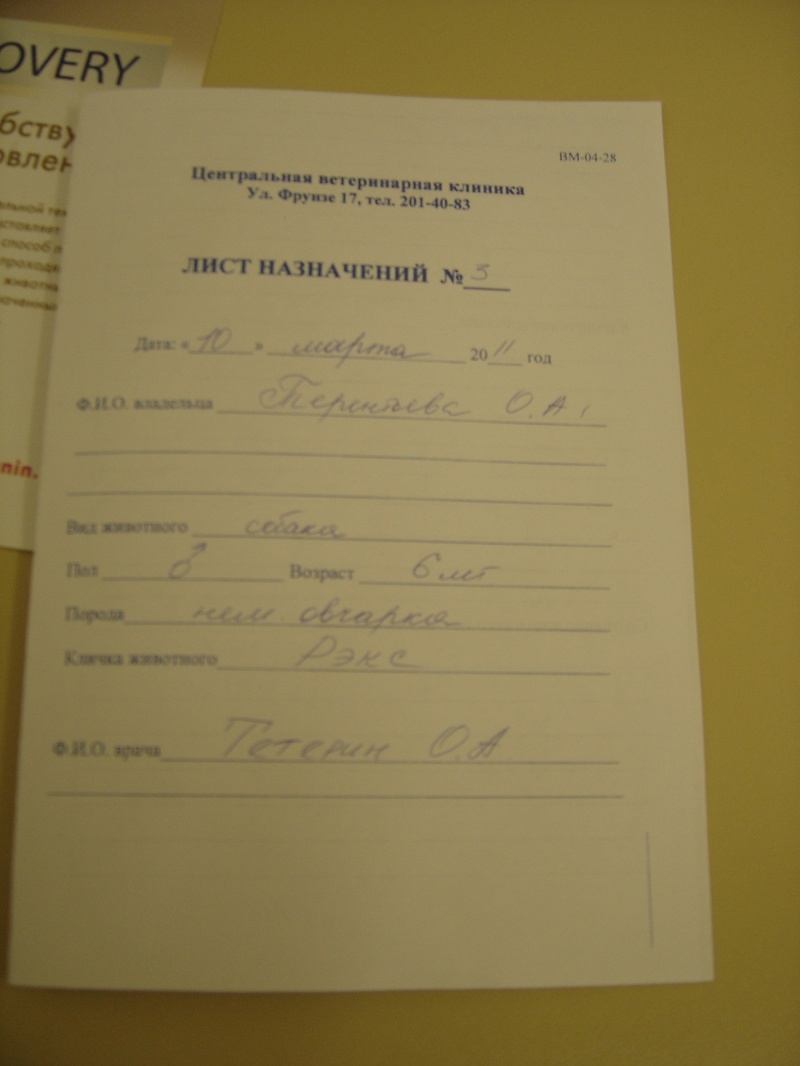 OVERY
ВМ-04-28
Центральная ветеринарная клиника
Ул. Фрунзе 17, тел. 201-40-83
ЛИСТ НАЗНАЧЕНИЙ № 3
Дата: «10» марта 2011 год
Ф.И.О. владельца Терентьева О.А.
Вид животного собака
Пол ♂ Возраст 6 лет
Порода нем. овчарка
Кличка животного Рэкс
Ф.И.О. врача Тетерин О.А
бству
овлен
способ п
проходя
животна
nin.